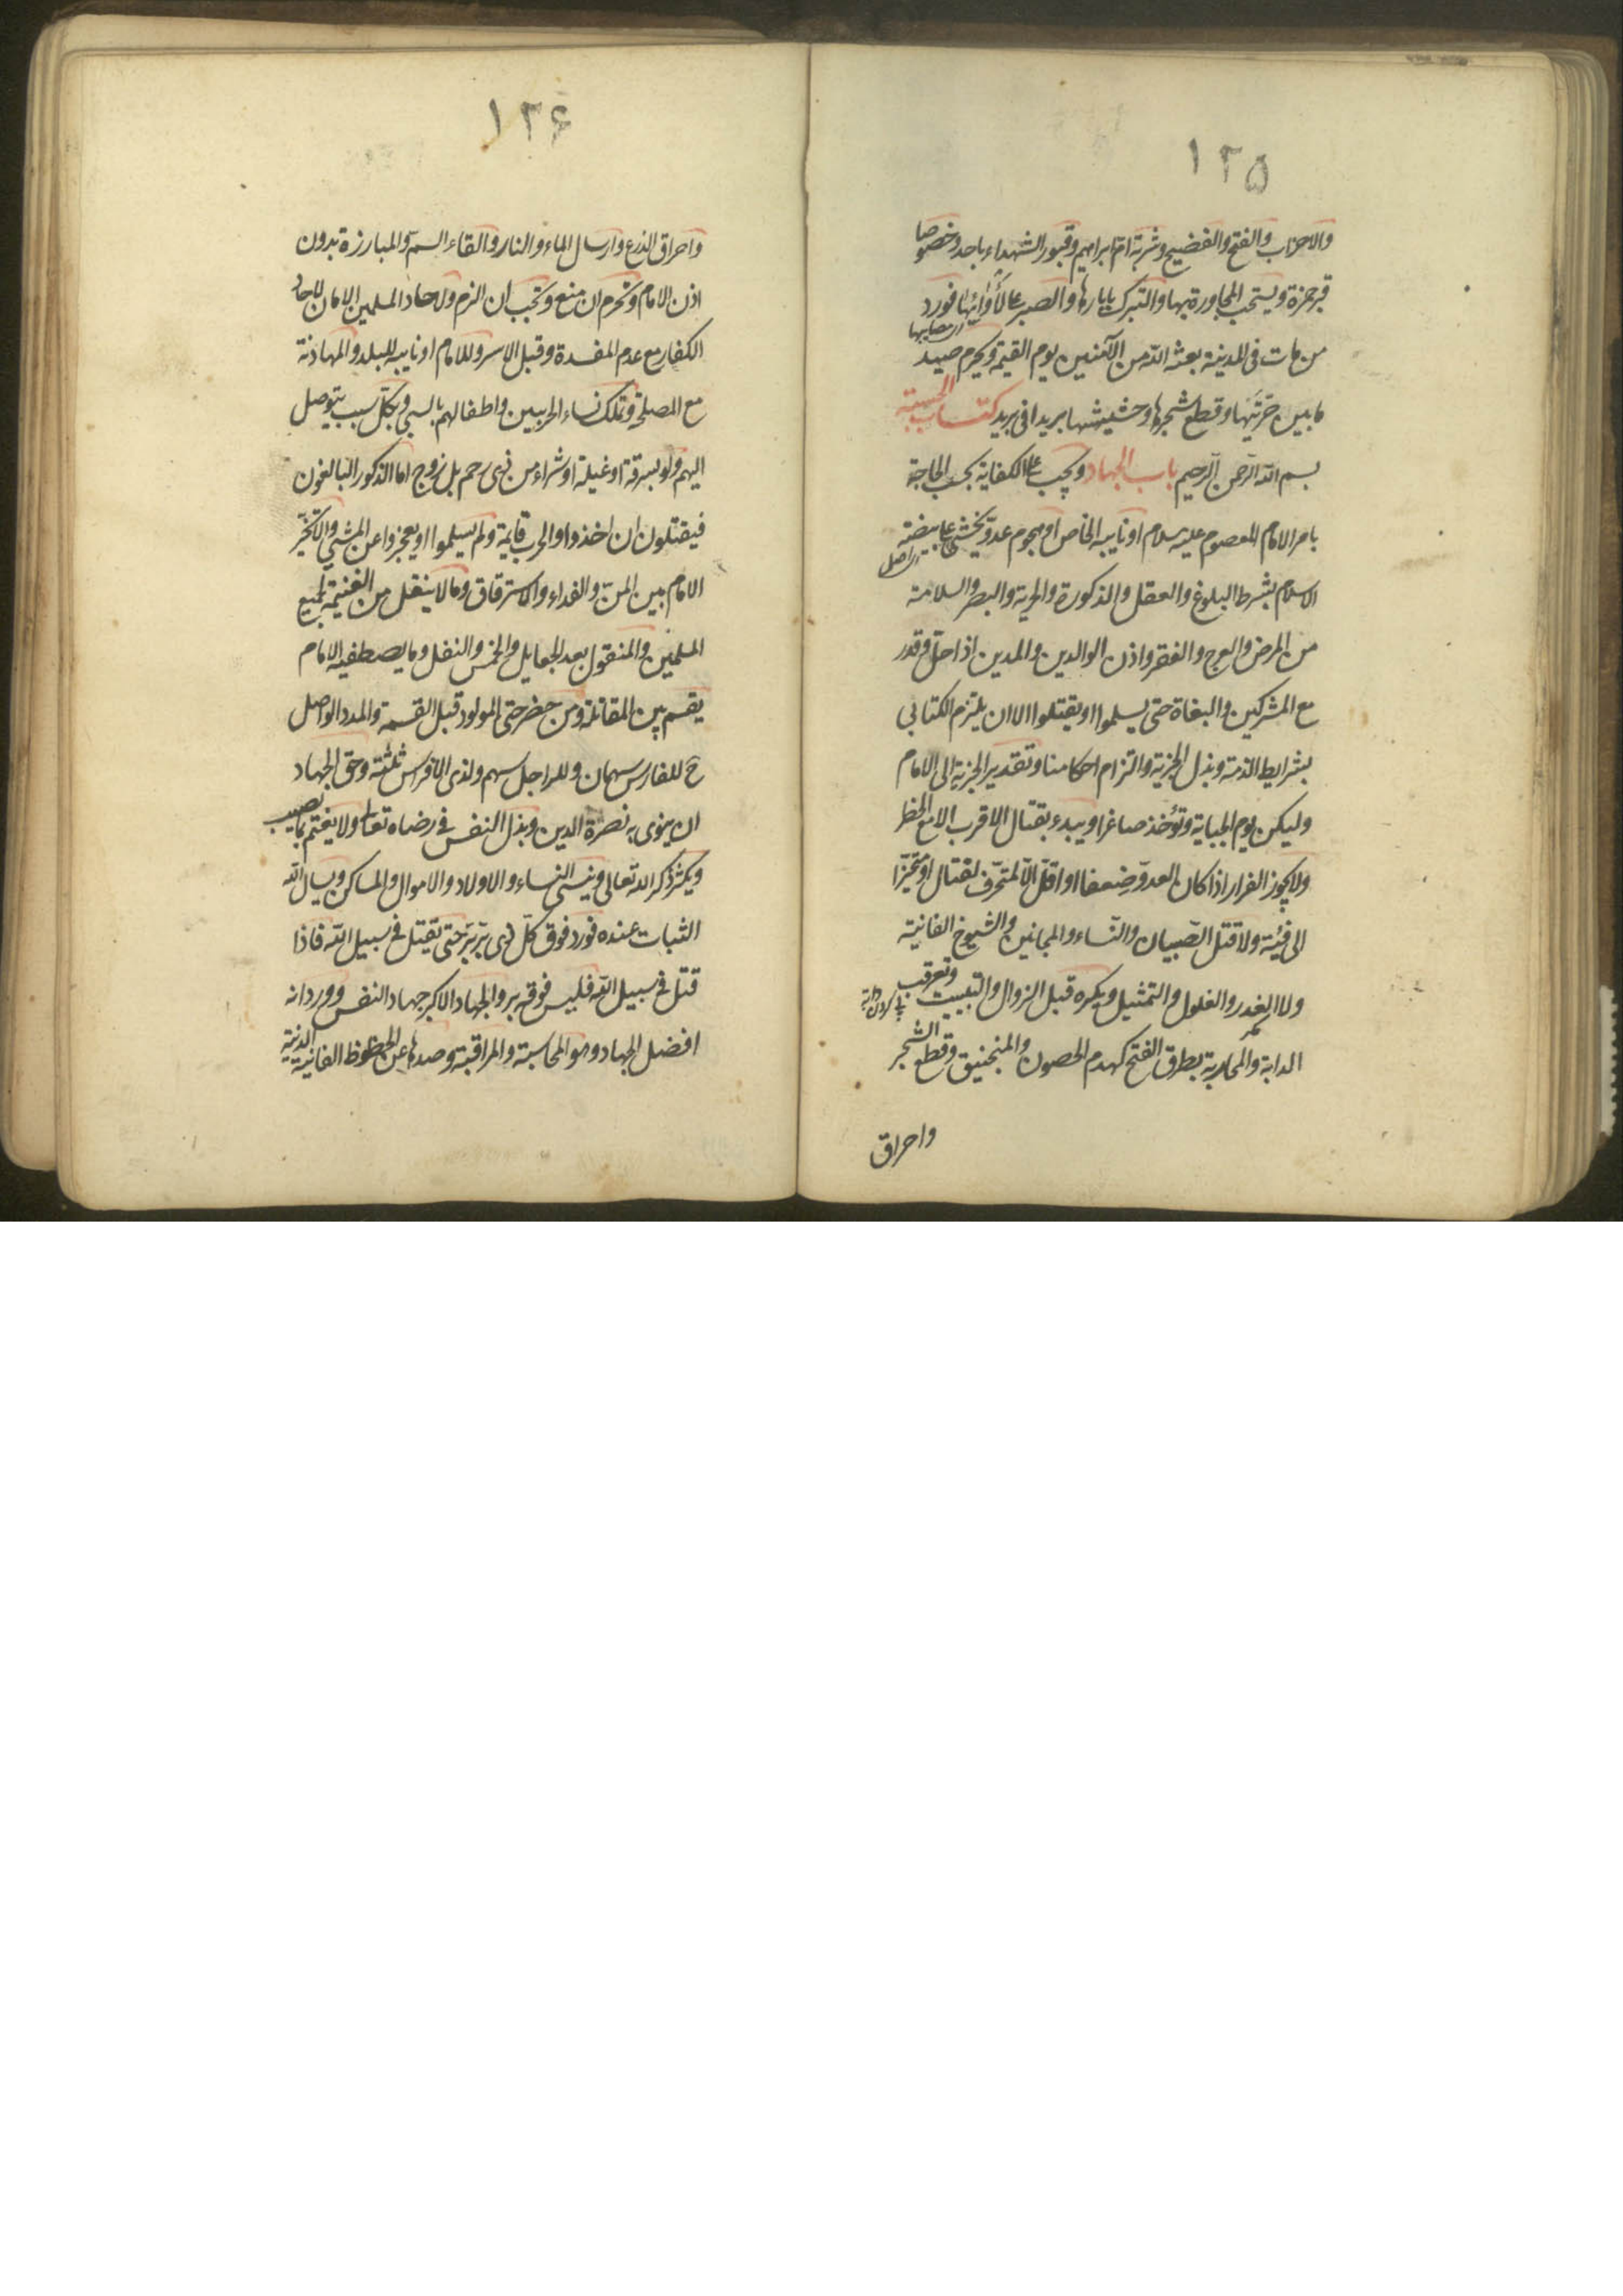 ١٢٥
والاحزاب والفتح والفضيح ومشربة ام ابراهيم وقبور الشهداء باحد وخصوصا
قبر حمزة ويستحب المجاورة بها والتبرك بابارها والصبر على لأوائها فورد
ای مصایبها
من مات فى المدينة بعثه الله من الآمنين يوم القيمة ويحرم صيد
ما بين حرتيها وقطع شجرها وحشيشها بريدا فى بريد كتاب الحسبة
بسم الله الرحمن الرحيم باب الجهاد ويجب على الكفاية بحسب الحاجة
بامر الامام المعصوم عليه سلام او نايبه الخاص او هجوم عدو يخشى على بيضة
ای اصل
الاسلام بشرط البلوغ والعقل والذكورة والحرية والبصر والسلامة
من المرض والعرج والفقر واذن الوالدين والمدين اذا حل وقدر
مع المشركين والبغاة حتى يسلموا او يقتلوا الا ان يلتزم الكتابي
بشرايط الذمة وبذل الجزية والتزام احكامنا وتقدير الجزية الى الامام
وليكن يوم الجباية وتؤخذ صاغرا ويبدء بقتال الاقرب الا مع الخطر
ولا يجوز الفرار اذا كان العدو ضعفا او اقل الا لمتحرف لقتال او متحيزا
الى فئة ولا قتل الصبيان والنساء والمجانين والشيوخ الفانية
ولا الغدر والغلول والتمثيل ويكره قبل الزوال والتبييت وتعرقب
پی کردن دابة
الدابة والمحاربة بطرق الفتح كهدم الحصون والمنجنيق وقطع الشجر
واحراق
١٢۶
واحراق الزرع وارسال الماء والنار والقاء السم والمبارزة بدون
اذن الامام وتحرم ان منع وتجب ان الزم ولاحاد المسلمين الامان لاحاد
الكفار مع عدم المفسدة وقبل الاسر وللامام او نايبه للبلد والمهادنة
مع المصلحة وتملك نساء الحربيين واطفالهم بالسبي وبكل سبب يتوصل
اليهم ولو بسرقة او غيلة او شراء من ذى رحم بل زوج اما الذكور البالغون
فيقتلون ان اخذوا والحرب قايمة ولم يسلموا او يعجزوا عن المشي والا تخير
الامام بين المن والفداء والاسترقاق وما لا ينقل من الغنيمة لجميع
المسلمين والمنقول بعد الجعايل والخمس والنفل وما يصطفيه الامام
يقسم بين المقاتلة ومن حضر حتى المولود قبل القسمة والمدد الواصل
ح للفارس سهمان وللراجل سهم ولذى الافراس ثلثة وحق الجهاد
ان ينوى به نصرة الدين وبذل النفس في رضاه تعالى ولا يغتم بما يصيب
ويكثر ذكر الله تعالى وينسى النساء والاولاد والاموال والمساكن ويسال الله
الثبات عنده فورد فوق كل ذى بر بر حتى يقتل في سبيل الله فاذا
قتل في سبيل الله فليس فوقه بر والجهاد الاكبر جهاد النفس وورد انه
افضل الجهاد وهو المحاسبة والمراقبة وصدها عن الحظوظ الفانية الدنية